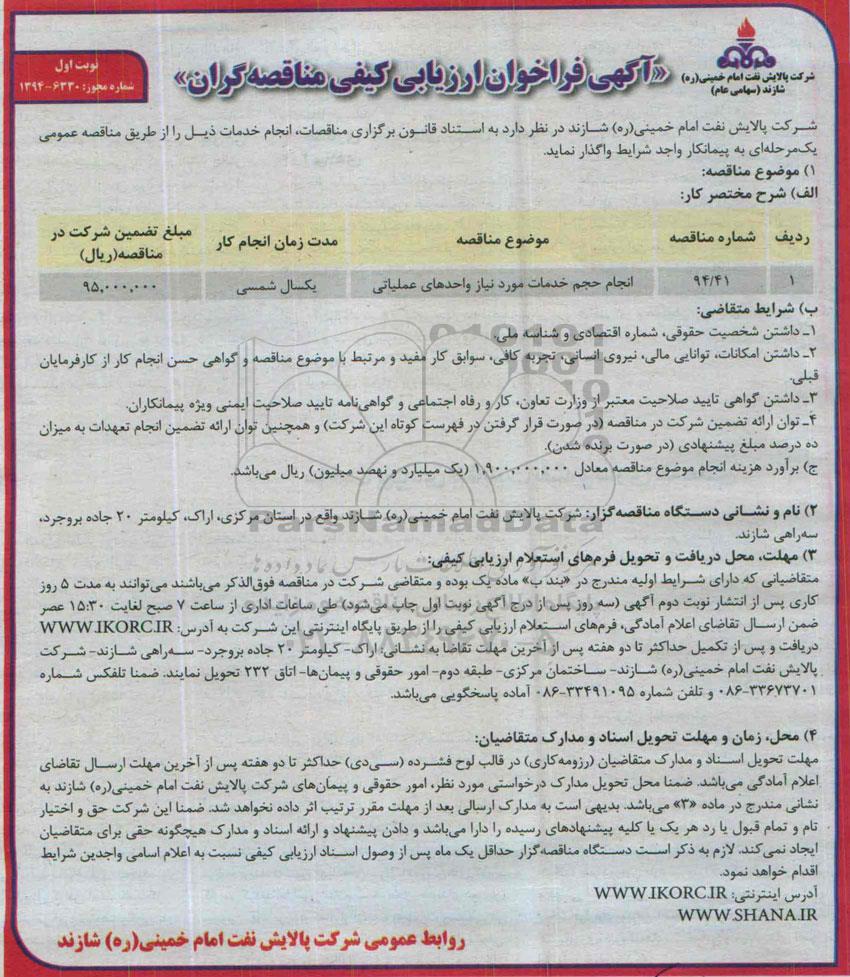 شرکت پالایش نفت امام خمینی(ره)
شازند (سهامی عام)
«آگهی فراخوان ارزیابی کیفی مناقصه‌گران»
نوبت اول
شماره مجوز: ۶۳۳۰-۱۳۹۴
شرکت پالایش نفت امام خمینی(ره) شازند در نظر دارد به استناد قانون برگزاری مناقصات، انجام خدمات ذیل را از طریق مناقصه عمومی
یک‌مرحله‌ای به پیمانکار واجد شرایط واگذار نماید.
۱) موضوع مناقصه:
الف) شرح مختصر کار:
ردیف شماره مناقصه موضوع مناقصه مدت زمان انجام کار مبلغ تضمین شرکت در مناقصه(ریال)
۱ ۹۴/۴۱ انجام حجم خدمات مورد نیاز واحدهای عملیاتی یکسال شمسی ۹۵,۰۰۰,۰۰۰
ب) شرایط متقاضی:
۱ـ داشتن شخصیت حقوقی، شماره اقتصادی و شناسه ملی.
۲ـ داشتن امکانات، توانایی مالی، نیروی انسانی، تجربه کافی، سوابق کار مفید و مرتبط با موضوع مناقصه و گواهی حسن انجام کار از کارفرمایان
قبلی.
۳ـ داشتن گواهی تایید صلاحیت معتبر از وزارت تعاون، کار و رفاه اجتماعی و گواهی‌نامه تایید صلاحیت ایمنی ویژه پیمانکاران.
۴ـ توان ارائه تضمین شرکت در مناقصه (در صورت قرار گرفتن در فهرست کوتاه این شرکت) و همچنین توان ارائه تضمین انجام تعهدات به میزان
ده درصد مبلغ پیشنهادی (در صورت برنده شدن).
ج) برآورد هزینه انجام موضوع مناقصه معادل ۱,۹۰۰,۰۰۰,۰۰۰ (یک میلیارد و نهصد میلیون) ریال می‌باشد.
۲) نام و نشانی دستگاه مناقصه‌گزار: شرکت پالایش نفت امام خمینی(ره) شازند واقع در استان مرکزی، اراک، کیلومتر ۲۰ جاده بروجرد،
سه‌راهی شازند.
۳) مهلت، محل دریافت و تحویل فرم‌های استعلام ارزیابی کیفی:
متقاضیانی که دارای شرایط اولیه مندرج در «بند ب» ماده یک بوده و متقاضی شرکت در مناقصه فوق‌الذکر می‌باشند می‌توانند به مدت ۵ روز
کاری پس از انتشار نوبت دوم آگهی (سه روز پس از درج آگهی نوبت اول چاپ می‌شود) طی ساعات اداری از ساعت ۷ صبح لغایت ۱۵:۳۰ عصر
ضمن ارسال تقاضای اعلام آمادگی، فرم‌های استعلام ارزیابی کیفی را از طریق پایگاه اینترنتی این شرکت به آدرس: WWW.IKORC.IR
دریافت و پس از تکمیل حداکثر تا دو هفته پس از آخرین مهلت تقاضا به نشانی: اراک- کیلومتر ۲۰ جاده بروجرد- سه‌راهی شازند- شرکت
پالایش نفت امام خمینی(ره) شازند- ساختمان مرکزی- طبقه دوم- امور حقوقی و پیمان‌ها- اتاق ۲۳۲ تحویل نمایند. ضمنا تلفکس شماره
۰۸۶-۳۳۶۷۳۷۰۱ و تلفن شماره ۰۸۶-۳۳۴۹۱۰۹۵ آماده پاسخگویی می‌باشد.
۴) محل، زمان و مهلت تحویل اسناد و مدارک متقاضیان:
مهلت تحویل اسناد و مدارک متقاضیان (رزومه‌کاری) در قالب لوح فشرده (سی‌دی) حداکثر تا دو هفته پس از آخرین مهلت ارسال تقاضای
اعلام آمادگی می‌باشد. ضمنا محل تحویل مدارک درخواستی مورد نظر، امور حقوقی و پیمان‌های شرکت پالایش نفت امام خمینی(ره) شازند به
نشانی مندرج در ماده «۳» می‌باشد. بدیهی است به مدارک ارسالی بعد از مهلت مقرر ترتیب اثر داده نخواهد شد. ضمنا این شرکت حق و اختیار
تام و تمام قبول یا رد هر یک یا کلیه پیشنهادهای رسیده را دارا می‌باشد و دادن پیشنهاد و ارائه اسناد و مدارک هیچگونه حقی برای متقاضیان
ایجاد نمی‌کند. لازم به ذکر است دستگاه مناقصه‌گزار حداقل یک ماه پس از وصول اسناد ارزیابی کیفی نسبت به اعلام اسامی واجدین شرایط
اقدام خواهد نمود.
آدرس اینترنتی: WWW.IKORC.IR
WWW.SHANA.IR
روابط عمومی شرکت پالایش نفت امام خمینی(ره) شازند
ParsNamadData